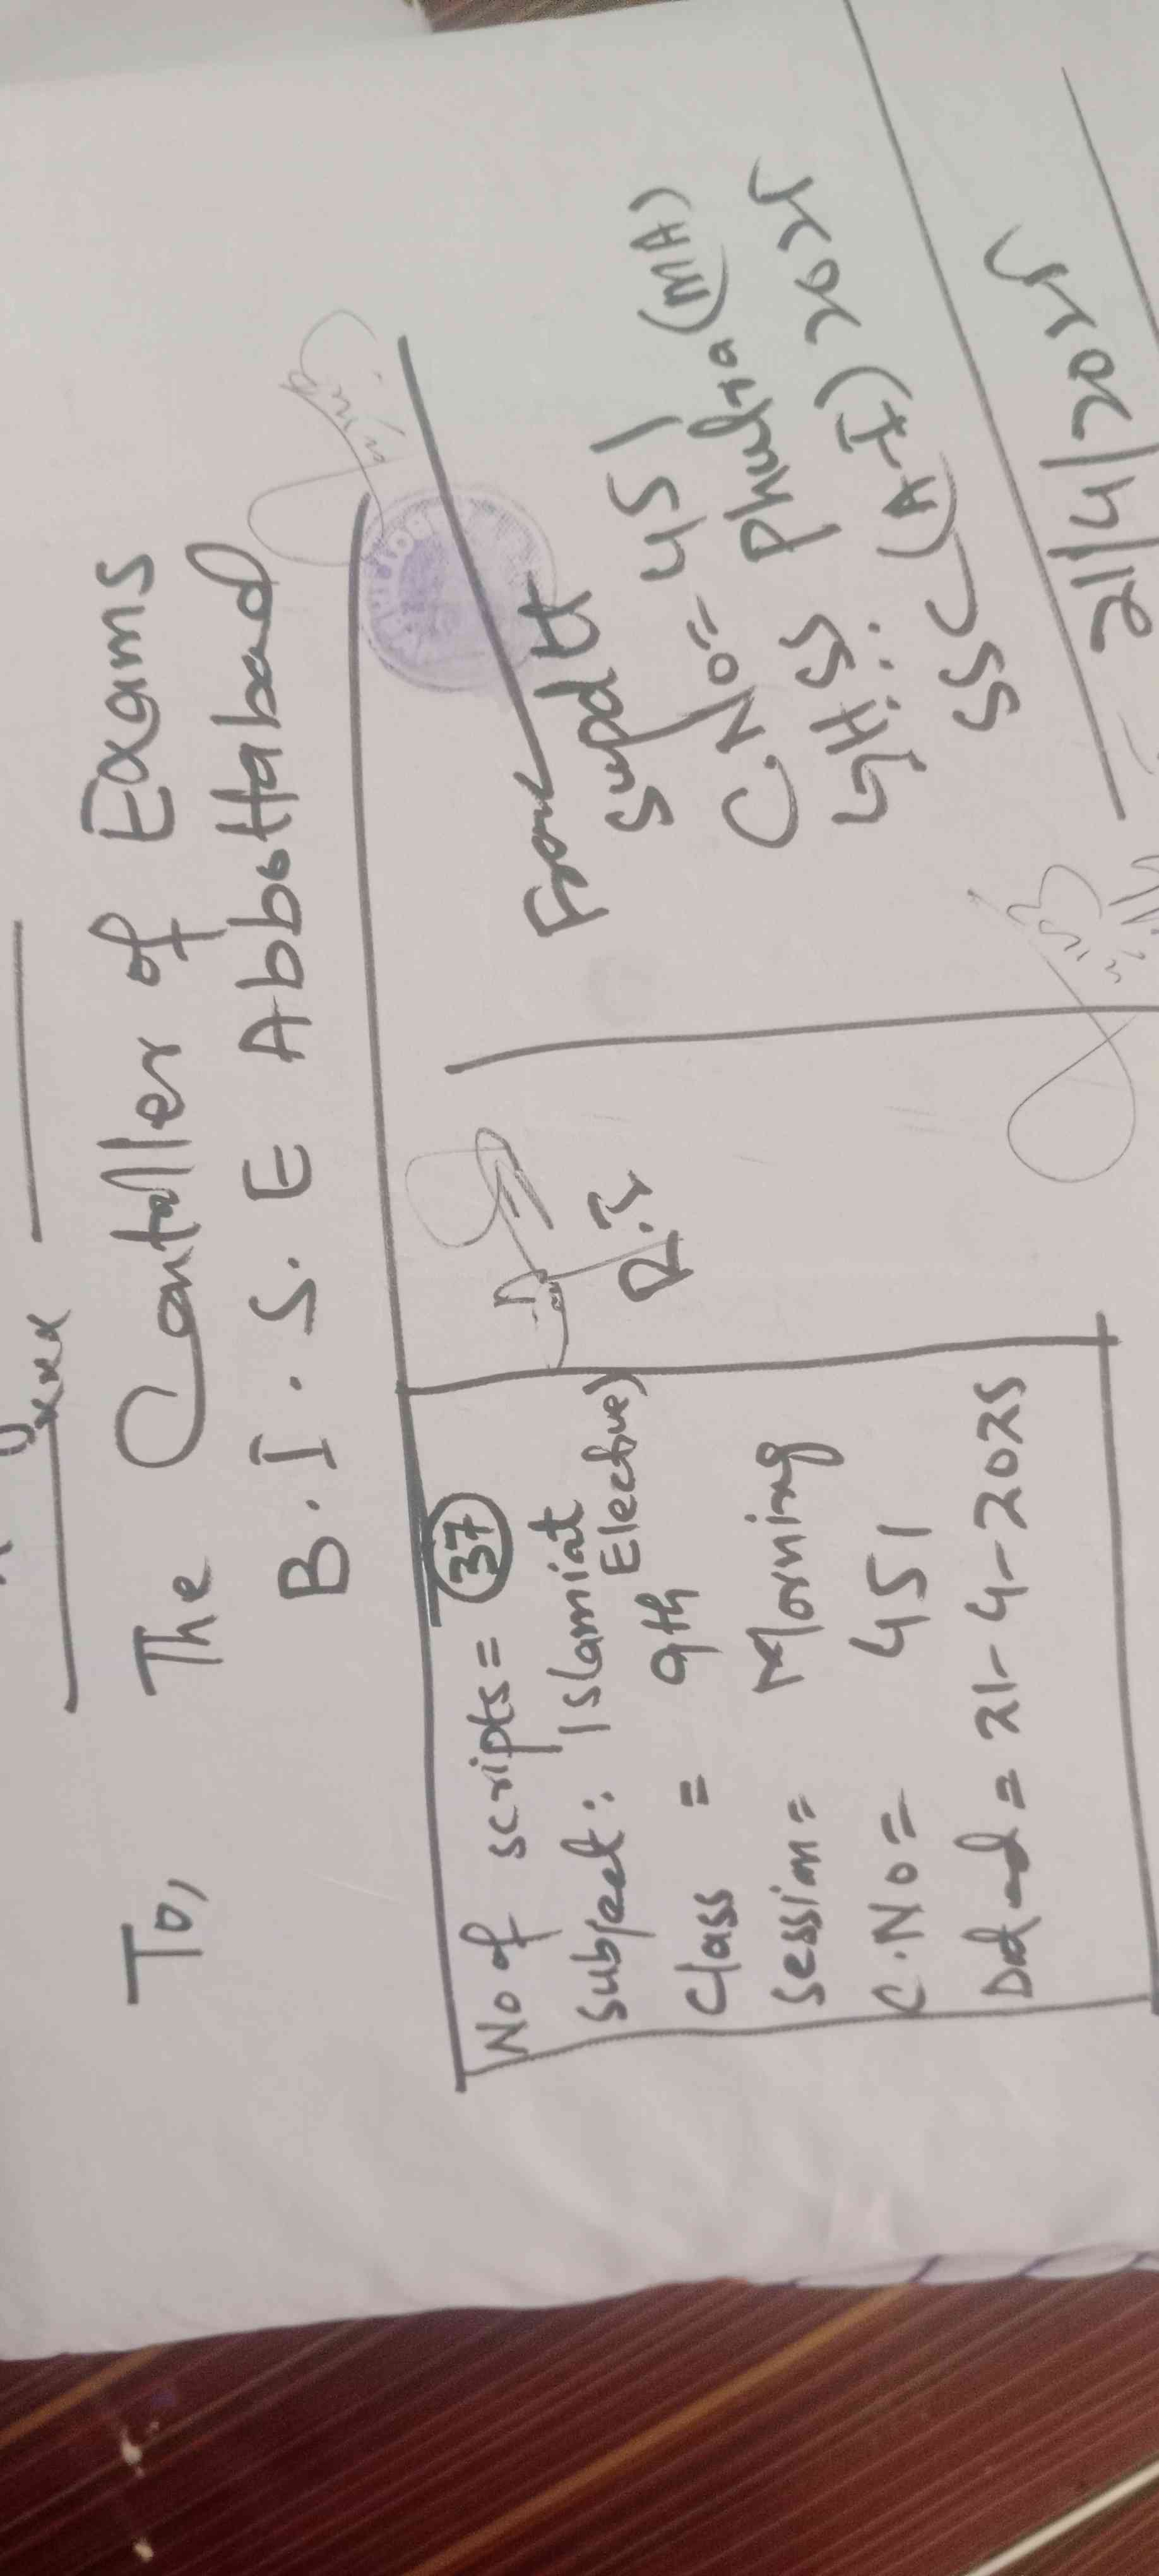 xxx
To, The Contoller of Exams
B.I.S.E Abbottabad
No of scripts = 37
Subject: Islamiat
Elective)
Class = 9th
Session = Morning
C.No = 451
Dated = 21-4-2025
R.I
From
Supdtt
C.No = 451
GHSS Phulra (MA)
SSC (A-I) 2025
21/4/2025